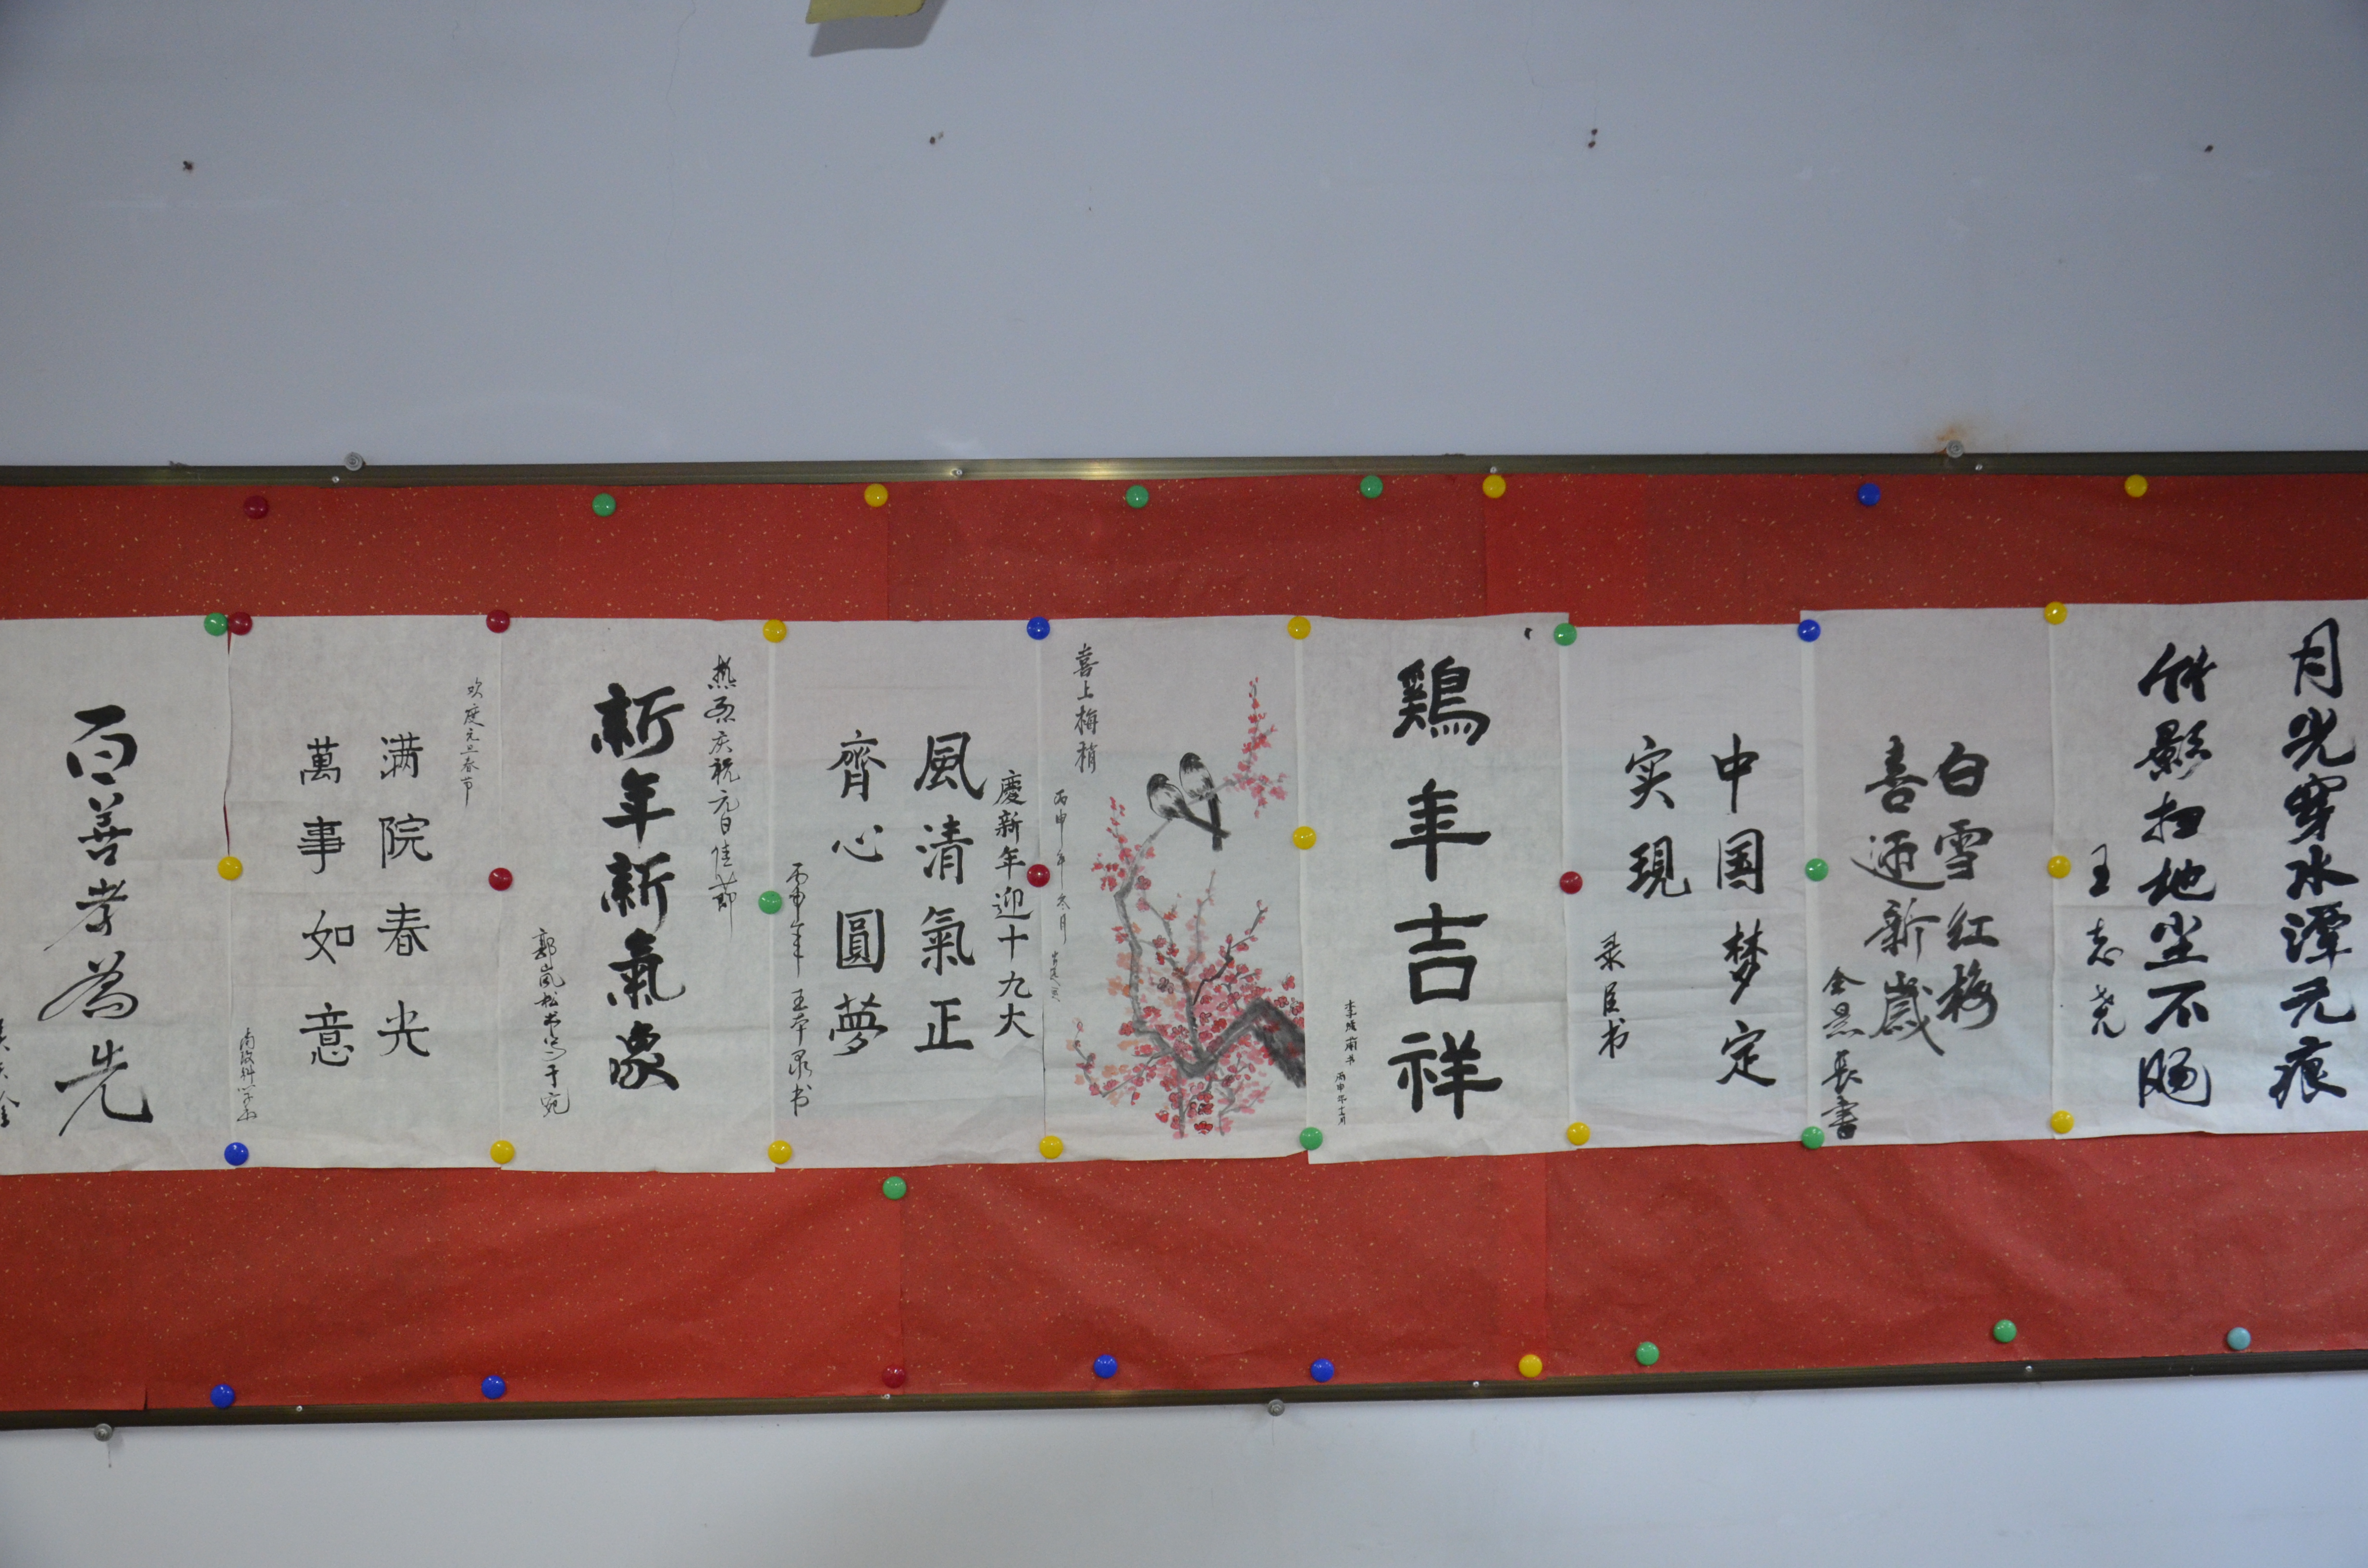 月光穿水潭无痕
竹影扫地尘不肠
王志尧
白雪红梅
喜迎新歲
金景長書
中国梦定
实現
录臣书
鶏年吉祥
丙申年十二月
喜上梅稍
丙申年冬月
慶新年迎十九大
風清氣正
齊心圓夢
丙申年王本录书
热烈庆祝元旦佳節
新年新氣象
郭嵐松书写于宛
欢度元旦春节
满院春光
萬事如意
百善孝為先